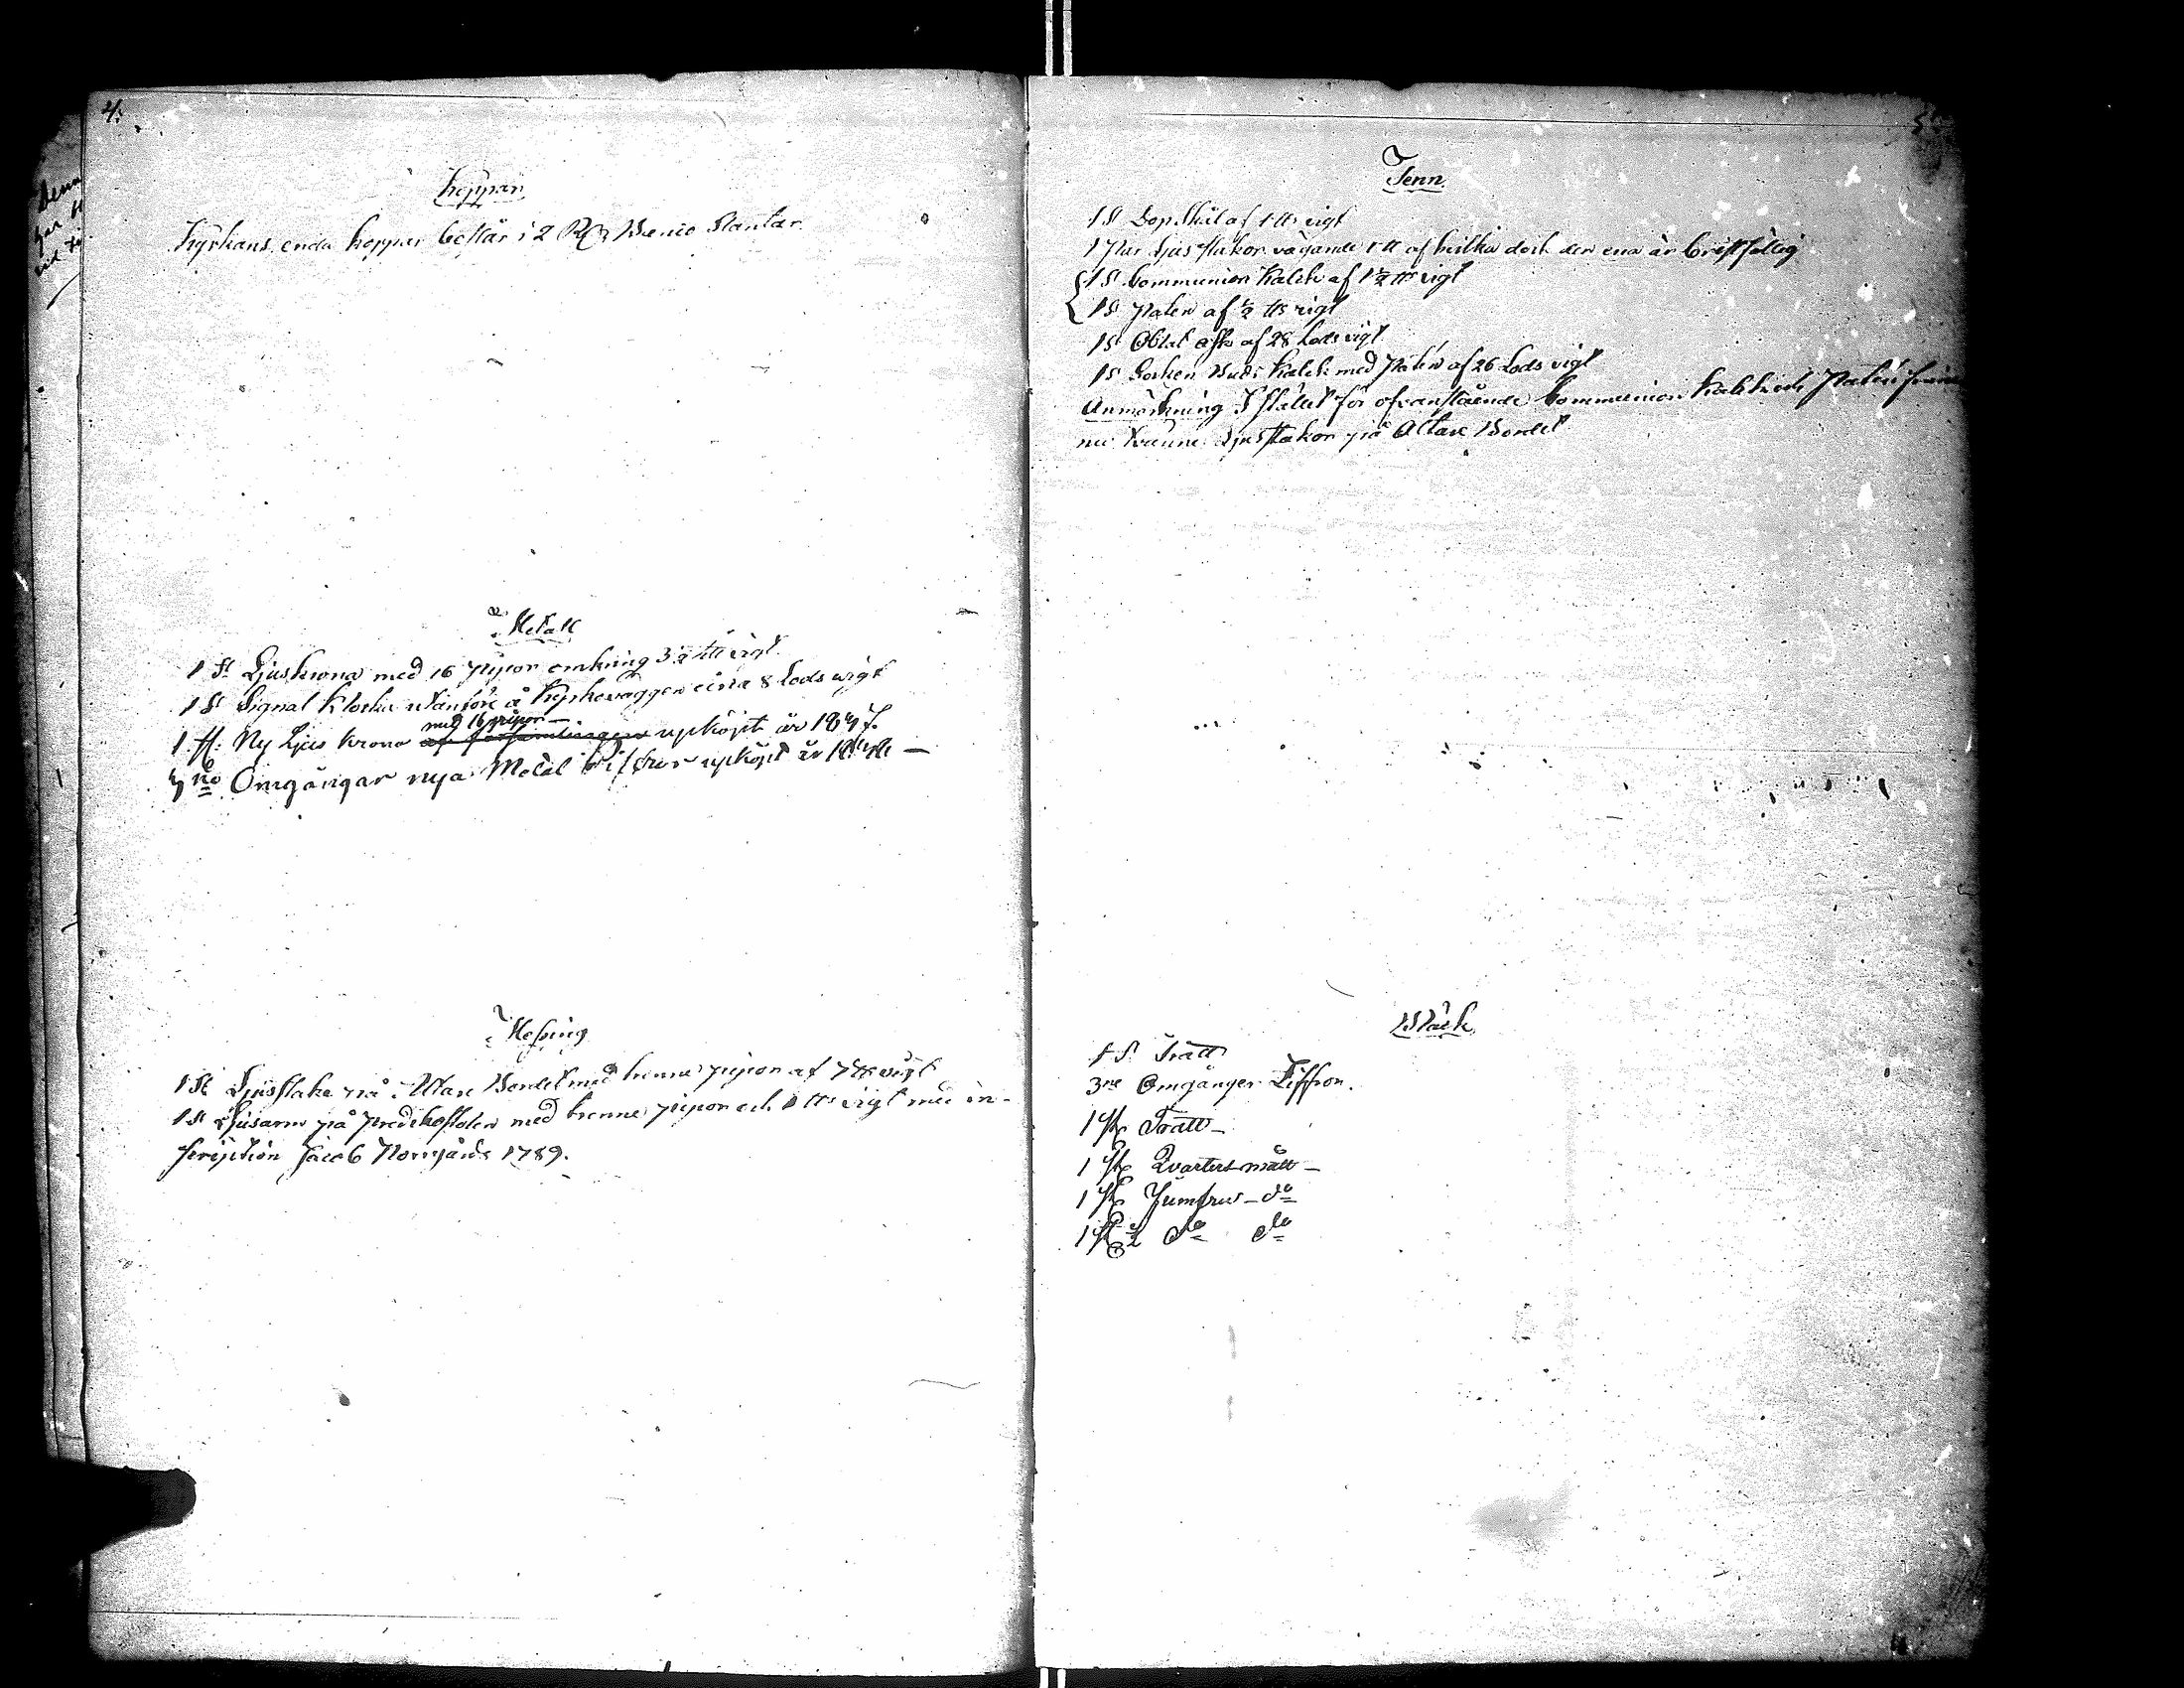 4.
Koppar
Kyrkans enda koppar består i 2 Banco Slantar.
Metall
1 St Ljuskrona med 16 pipor omkring 3 1/2 ℔ vigt
1 St Signal Klocka utanföre å Kyrkeväggen cirka 8 Lods vigt
med 16 pipor —
1 st: Ny Ljus krona af församlingen upköpt år 1847.
Omgångar nya Metal Ziffror upköpt år —
Messing
1 St Ljusstake på Altare Bordet med tvenne pipor af 7 ℔ vigt
1 St Ljusarm på Predikostolen med tvenne pipor och ℔ vigt med in-
scription Jacob Norrgårds 1789.
Tenn
1 St Dop Skål af 1 ℔ vigt
1 Par Ljus stakor vägande ℔ af hvilka dock den ena är bristfällig
1 St Communion Kalck af 1 1/2 ℔ vigt
1 St Paten af 1/2 ℔ vigt
1 St Oblat ask af 28 Lods vigt
1 St Socken Buds Kalck med Paten af 26 Lods vigt
Anmärkning I stället för ofvanstående Communion Kalk och Paten
nu tvänne Ljusstakor på Altare Bordet
Bläck
1 St Tratt
3ne Omgånger Ziffror.
1 st Tratt —
1 st Qvarters mått —
1 st Jumfru — do
1 st 1/2 do do